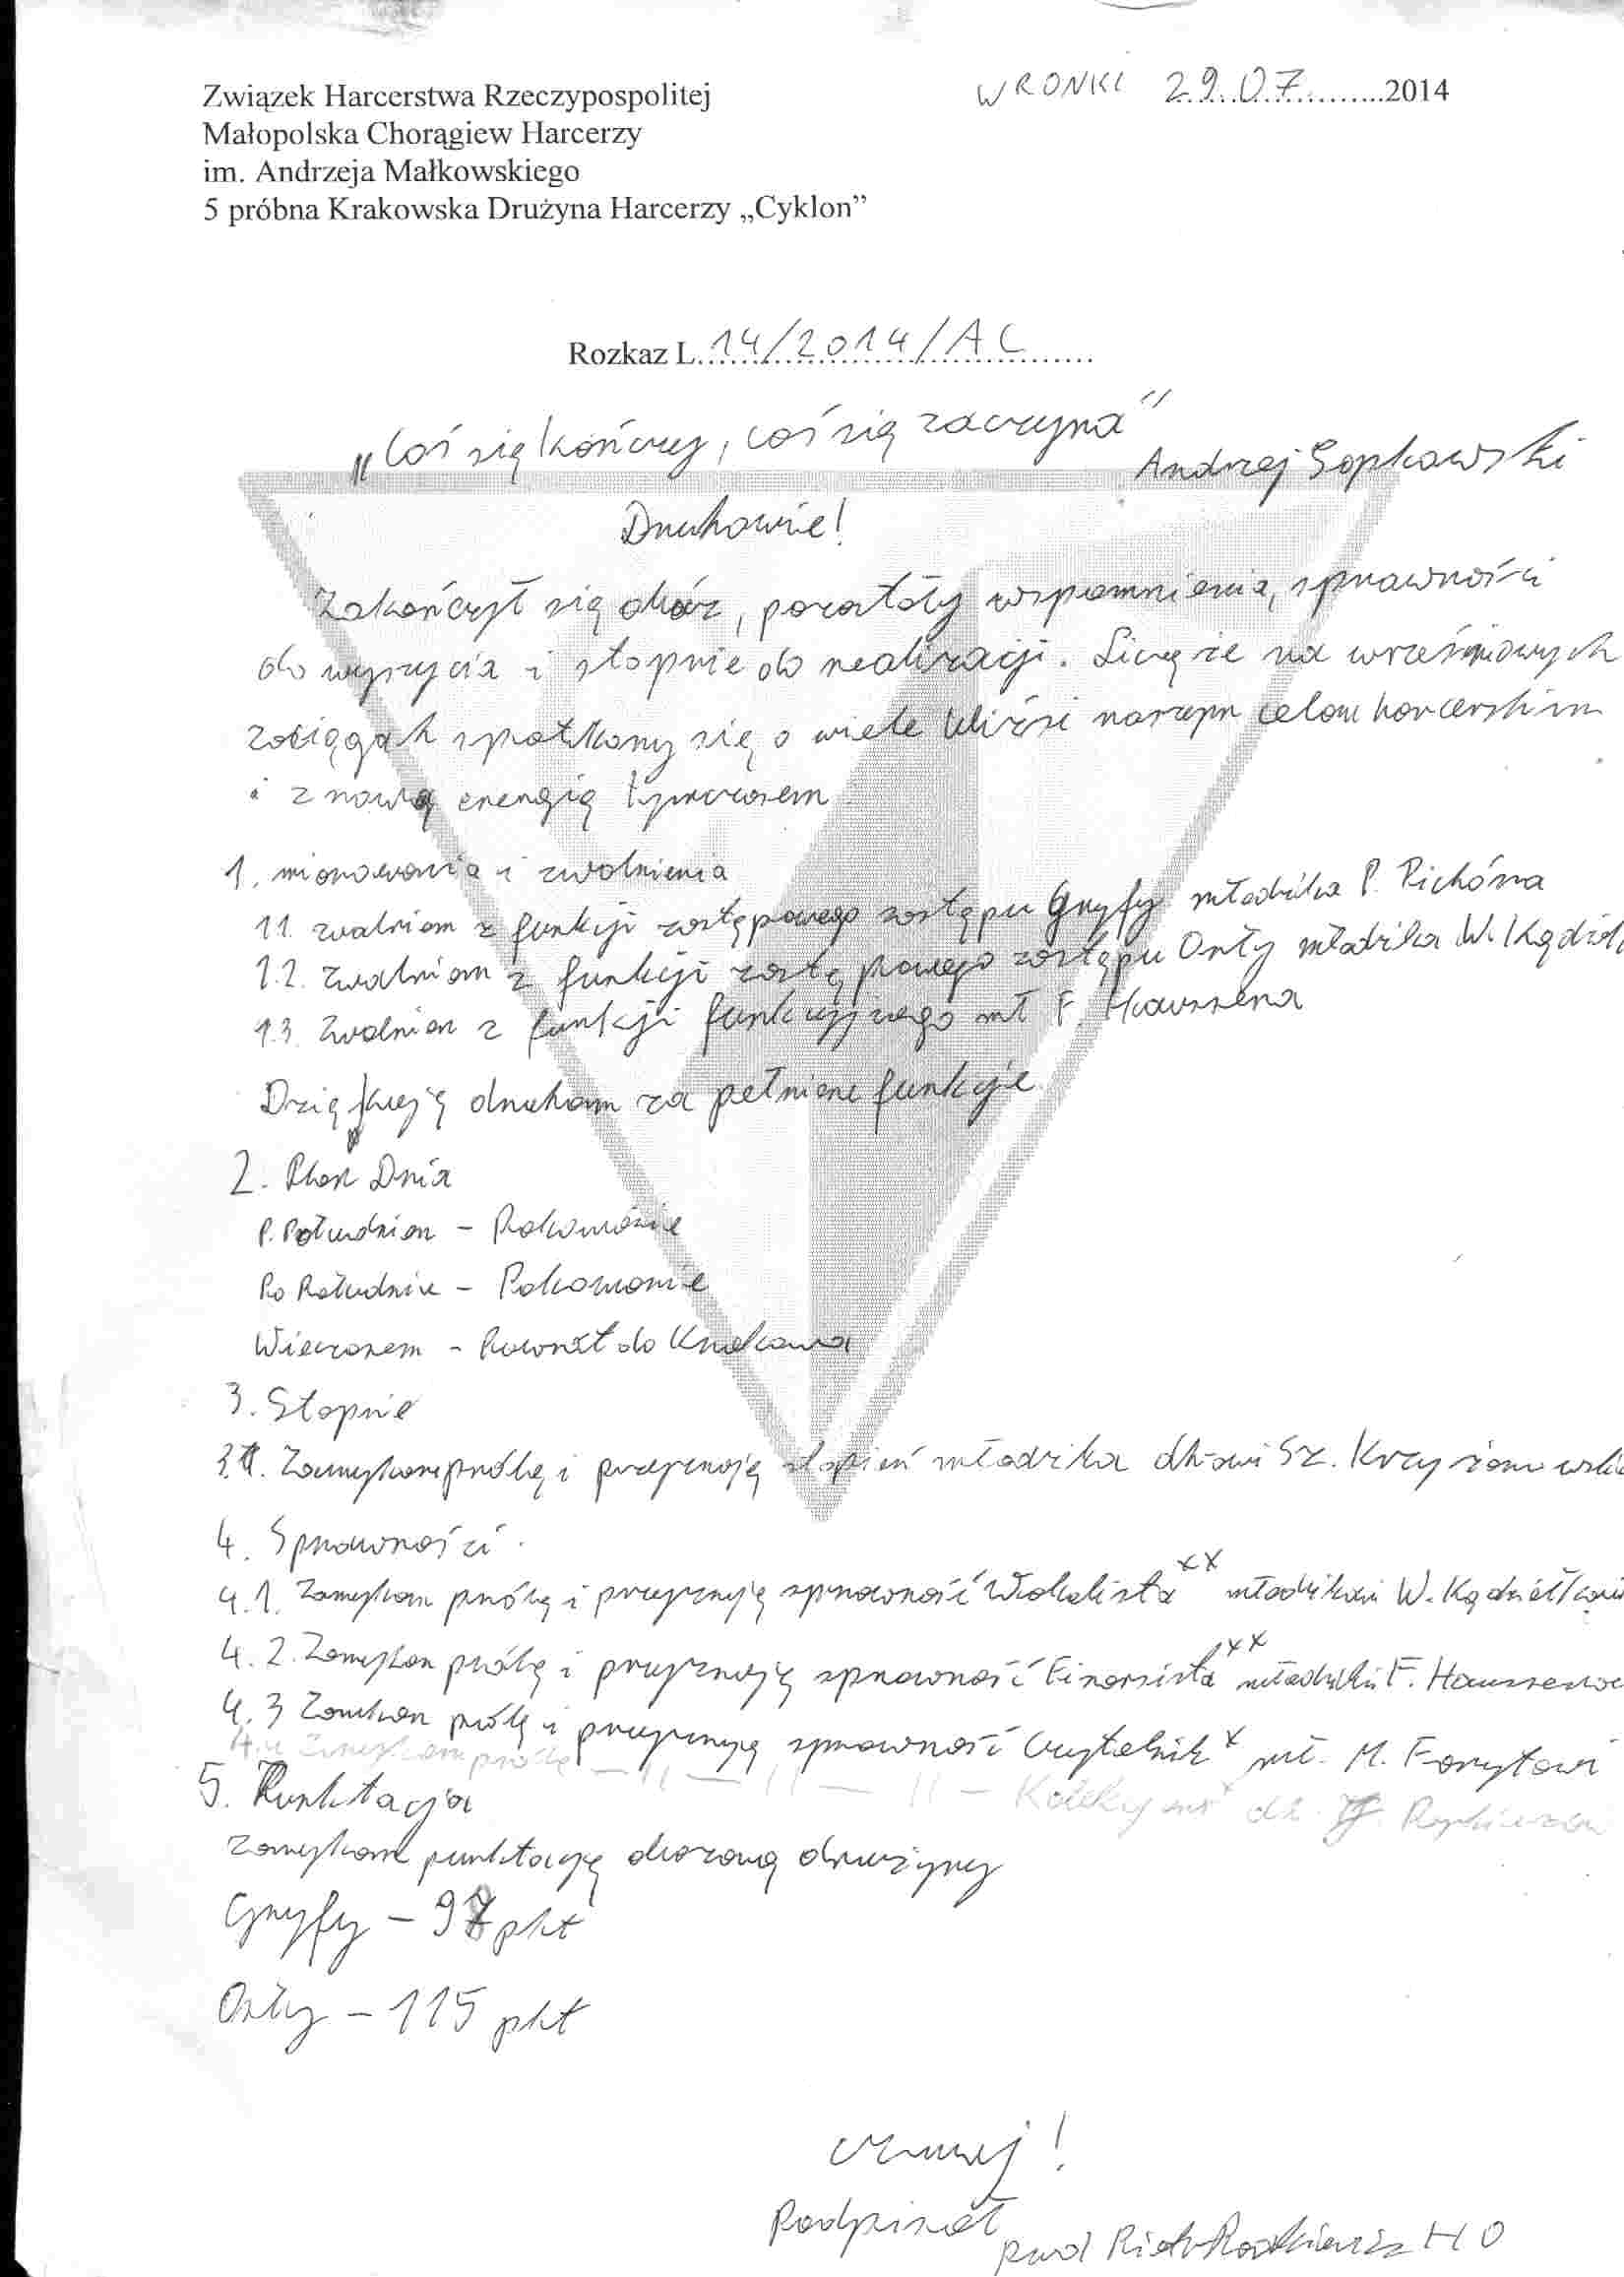 WRONKI 29.07..........2014
Związek Harcerstwa Rzeczypospolitej
Małopolska Chorągiew Harcerzy
im. Andrzeja Małkowskiego
5 próbna Krakowska Drużyna Harcerzy „Cyklon”
Rozkaz L. 14/2014/AC
„Coś się kończy, coś się zaczyna”
Andrzej Sapkowski
Druhowie!
Zakończył się obóz, pozostały wspomnienia, sprawności
do wyszycia i stopnie do realizacji. Liczę że na wrześniowych
zbiórkach spotkamy się o wiele bliżsi naszym celom harcerskim
i z nową energią tymczasem
1. mianowania i zwolnienia
1.1. zwalniam z funkcji zastępowego zastępu Gryfy młodzika P. Pichóra
1.2. zwalniam z funkcji zastępowego zastępu Orły młodzika W. Kądzioł
1.3. Zwalniam z funkcji funkcyjnego mł F. Haussena
Dziękuję druhom za pełnione funkcje
2. Plan Dnia
P. Południem - Pakowanie
Po Południu - Pakowanie
Wieczorem - Powrót do Krakowa
3. Stopnie
3.1. Zamykam próbę i przyznaję stopień młodzika dh-owi Sz. Krzyżanowskie
4. Sprawności
4.1. Zamykam próbę i przyznaję sprawność Wokalista xx młodzikowi W. Kądziołkowi
4.2. Zamykam próbę i przyznaję sprawność Finansista xxx F. Haussenowi
4.3 Zamykam próbę i przyznaję sprawność Czytelnik x mł. M. Forytowi
4.4 Zamykam próbę — 11 — 11 — 11 — dh.
5. Punktacja
Zamykam punktację obozową drużyny
Gryfy - 97 pkt
Orły - 115 pkt
Czuwaj!
Podpisał
pwd Piotr HO